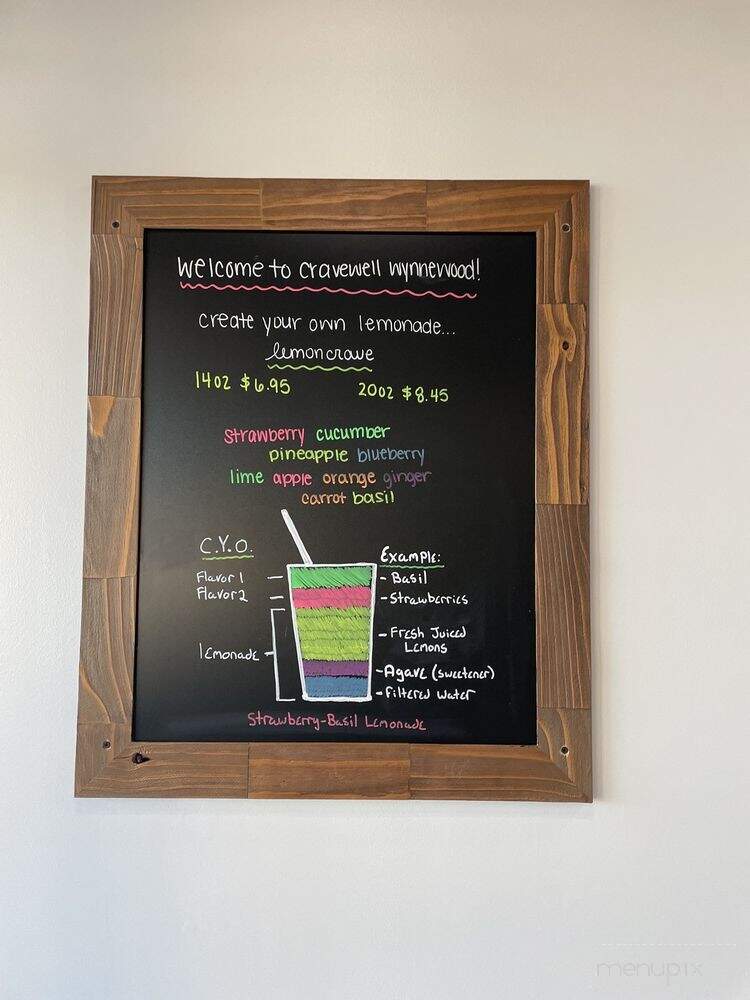 welcome to cravewell wynnewood!
create your own lemonade...
lemoncrave
14oz $6.95 20oz $8.45
strawberry cucumber
pineapple blueberry
lime apple orange ginger
carrot basil
C.Y.O. Example:
Flavor 1 - Basil
Flavor 2 - Strawberries
lemonade - Fresh Juiced
Lemons
- Agave (sweetener)
- Filtered water
Strawberry-Basil Lemonade
menupix